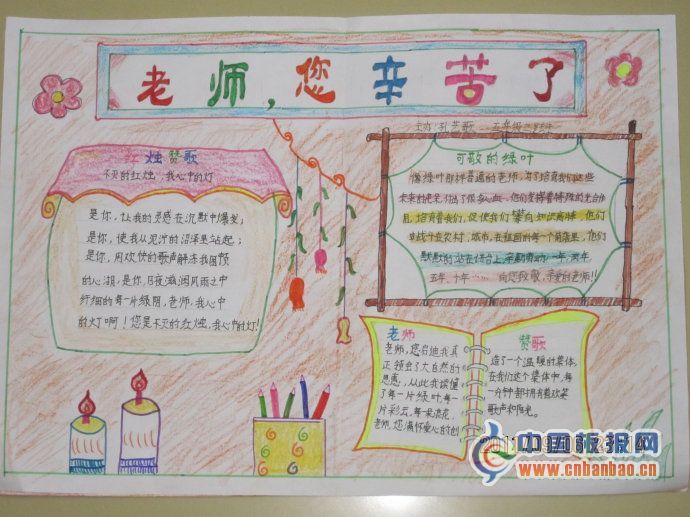 老师,您辛苦了
红烛赞歌
不灭的红烛,我心中的灯
是你,让我的灵感在沉默中爆发;
是你,使我从泥泞的沼泽里站起;
是你,用欢快的歌声解冻我困顿
的心湖,是你,日夜滋润风雨之中
纤细的每一片绿阴,老师,我心中
的灯啊!您是不灭的红烛,我心中的灯!
主办:孔艺歌 五年级
可敬的绿叶
像绿叶那样普通的老师,为了培育我们这些
未来的花朵,付出了很多心血,他们发挥着特殊的光合作
用,培育着我们,促使我们攀向知识高峰,他们
在农村,城市,在祖国的每一个角落里,他们
默默的站在讲台上,辛勤劳动一年,两年,
五年,十年…… 向您致敬,亲爱的老师!!
老师
老师,您启迪我真
正领会了大自然的
恩惠,从此我读懂
了每一片绿叶每一
片彩云,每一朵浪花,
老师,您满怀爱心的创
赞歌
造了一个温暖的集体,
在我们这个集体中,每
一分钟都拥有着欢笑
歌声和阳光。
中国板报网
www.cnbanbao.cn